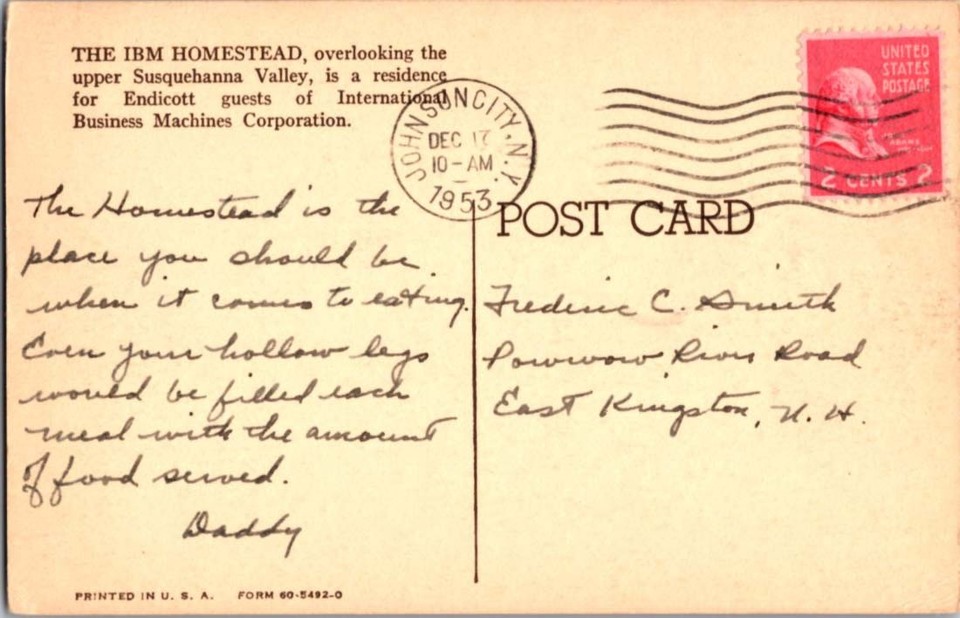 THE IBM HOMESTEAD, overlooking the
upper Susquehanna Valley, is a residence
for Endicott guests of International
Business Machines Corporation.
JOHNSON CITY, N.Y.
DEC 17
10-AM
1953
UNITED
STATES
POSTAGE
ADAMS
2 CENTS 2
POST CARD
The Homestead is the
place you should be
when it comes to eating.
Even your hollow legs
would be filled each
meal with the amount
of food served.
Daddy
Frederic C. Smith
Powwow River Road
East Kingston, N. H.
PRINTED IN U. S. A. FORM 60-5492-0